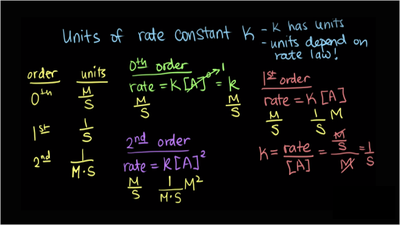 Units of rate constant K
- K has units
- units depend on
rate law!
order units
0th M/S
1st 1/S
2nd 1/M·S
0th order
rate = K[A]^0 → 1 = k
M/S M/S
2nd order
rate = k[A]²
M/S 1/M·S M²
1st order
rate = K[A]
M/S 1/S M
K = rate/[A] = M/S/M = 1/S